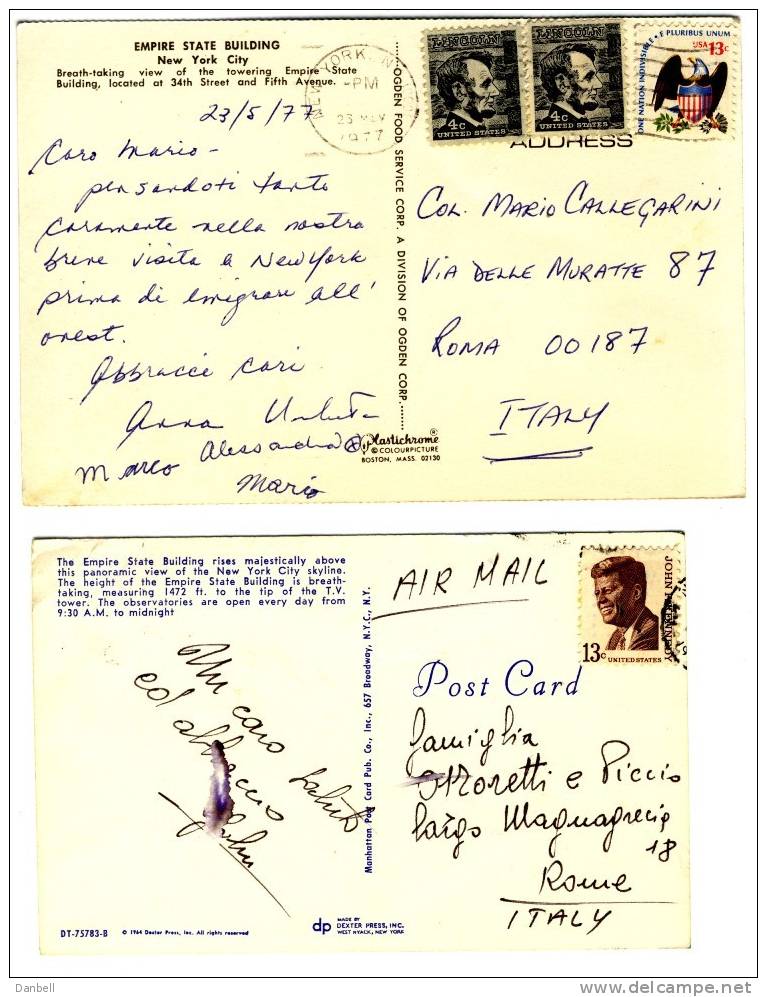 EMPIRE STATE BUILDING
New York City
Breath-taking view of the towering Empire State
Building, located at 34th Street and Fifth Avenue.
23/5/77
Caro Mario -
pensandoti tanto
caramente nella nostra
breve visita a New York
prima di emigrare all'
ovest.
Abbracci cari
Anna
Alessandra
Marco
Mario
OGDEN FOOD SERVICE CORP. A DIVISION OF OGDEN CORP.
Plastichrome ®
© COLOURPICTURE
BOSTON, MASS. 02130
NEW YORK, N.Y.
PM
1977
LINCOLN
4c
UNITED STATES
LINCOLN
4c
UNITED STATES
ONE NATION INDIVISIBLE • E PLURIBUS UNUM
USA 13c
ADDRESS
COL. MARIO CALLEGARINI
VIA DELLE MURATTE 87
ROMA 00187
ITALY
The Empire State Building rises majestically above
this panoramic view of the New York City skyline.
The height of the Empire State Building is breath-
taking, measuring 1472 ft. to the tip of the T.V.
tower. The observatories are open every day from
9:30 A.M. to midnight
Un caro saluto
ed abbraccio
DT-75783-B
© 1964 Dexter Press, Inc. All rights reserved
Manhattan Post Card Pub. Co., Inc., 657 Broadway, N.Y.C., N.Y.
dp MADE BY
DEXTER PRESS, INC.
WEST NYACK, NEW YORK
AIR MAIL
JOHN F. KENNEDY
13c
UNITED STATES
Post Card
Famiglia
Moretti e Piccio
Largo Magnagrecia
18
Rome
ITALY
Danbell
delcampe.net